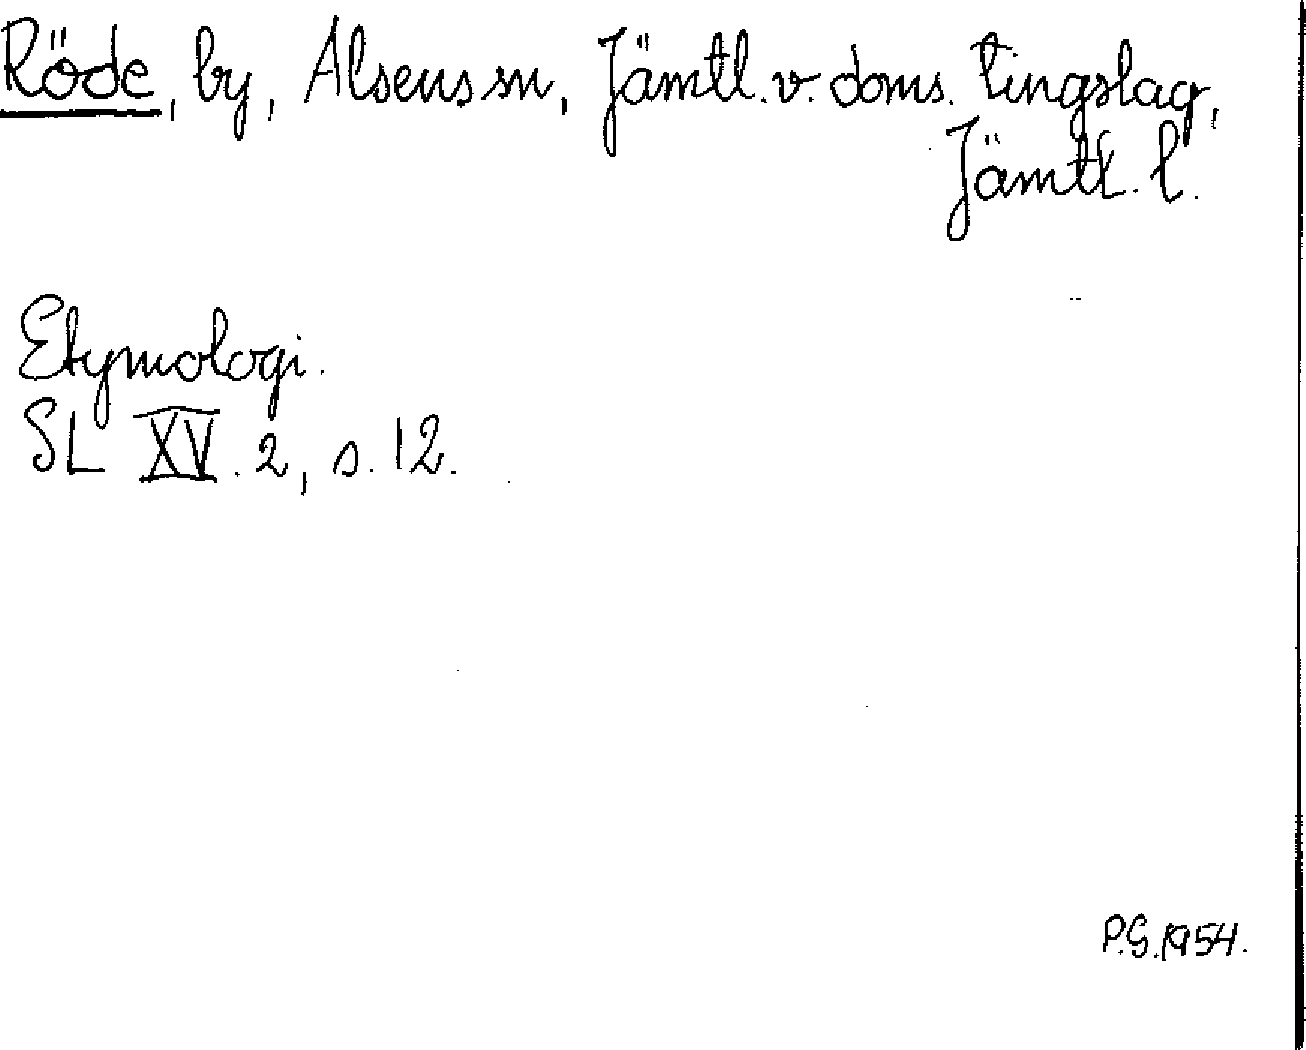 Röde, by, Alsens sn, Jämtl. v. doms. tingslag,
Jämtl. l.
Etymologi.
SL XV. 2, s. 12.
P.G. 1954.